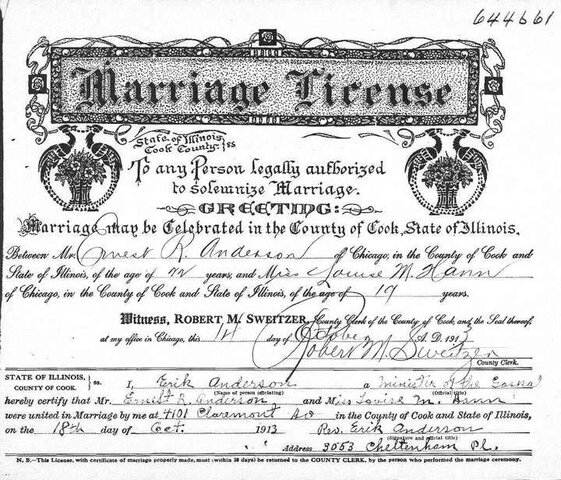 644661
Marriage License
State of Illinois,
Cook County. } ss
To any Person legally authorized
to solemnize Marriage.
GREETING:
Marriage may be Celebrated in the County of Cook, State of Illinois.
Between Mr. Ernest R. Anderson of Chicago, in the County of Cook and
State of Illinois, of the age of years, and Miss Louise M. Hann
of Chicago, in the County of Cook and State of Illinois, of the age of 19 years.
Witness, ROBERT M. SWEITZER, County Clerk of the County of Cook, and the Seal thereof,
at my office in Chicago, this 14 day of October A. D. 1913
Robert M. Sweitzer
County Clerk.
STATE OF ILLINOIS, COUNTY OF COOK. } ss. I, Erik Anderson a Minister of the Gospel
(Name of person officiating) (Official title)
hereby certify that Mr. Ernest R. Anderson and Miss Louise M. Hann
were united in Marriage by me at 4101 Claremont Av in the County of Cook and State of Illinois,
on the 18th day of Oct. 1913 Rev. Erik Anderson
(Signature and official title)
Address 3053 Cheltenham Pl.
N. B.—This License, with certificate of marriage properly made, must (within 30 days) be returned to the COUNTY CLERK, by the person who performed the marriage ceremony.